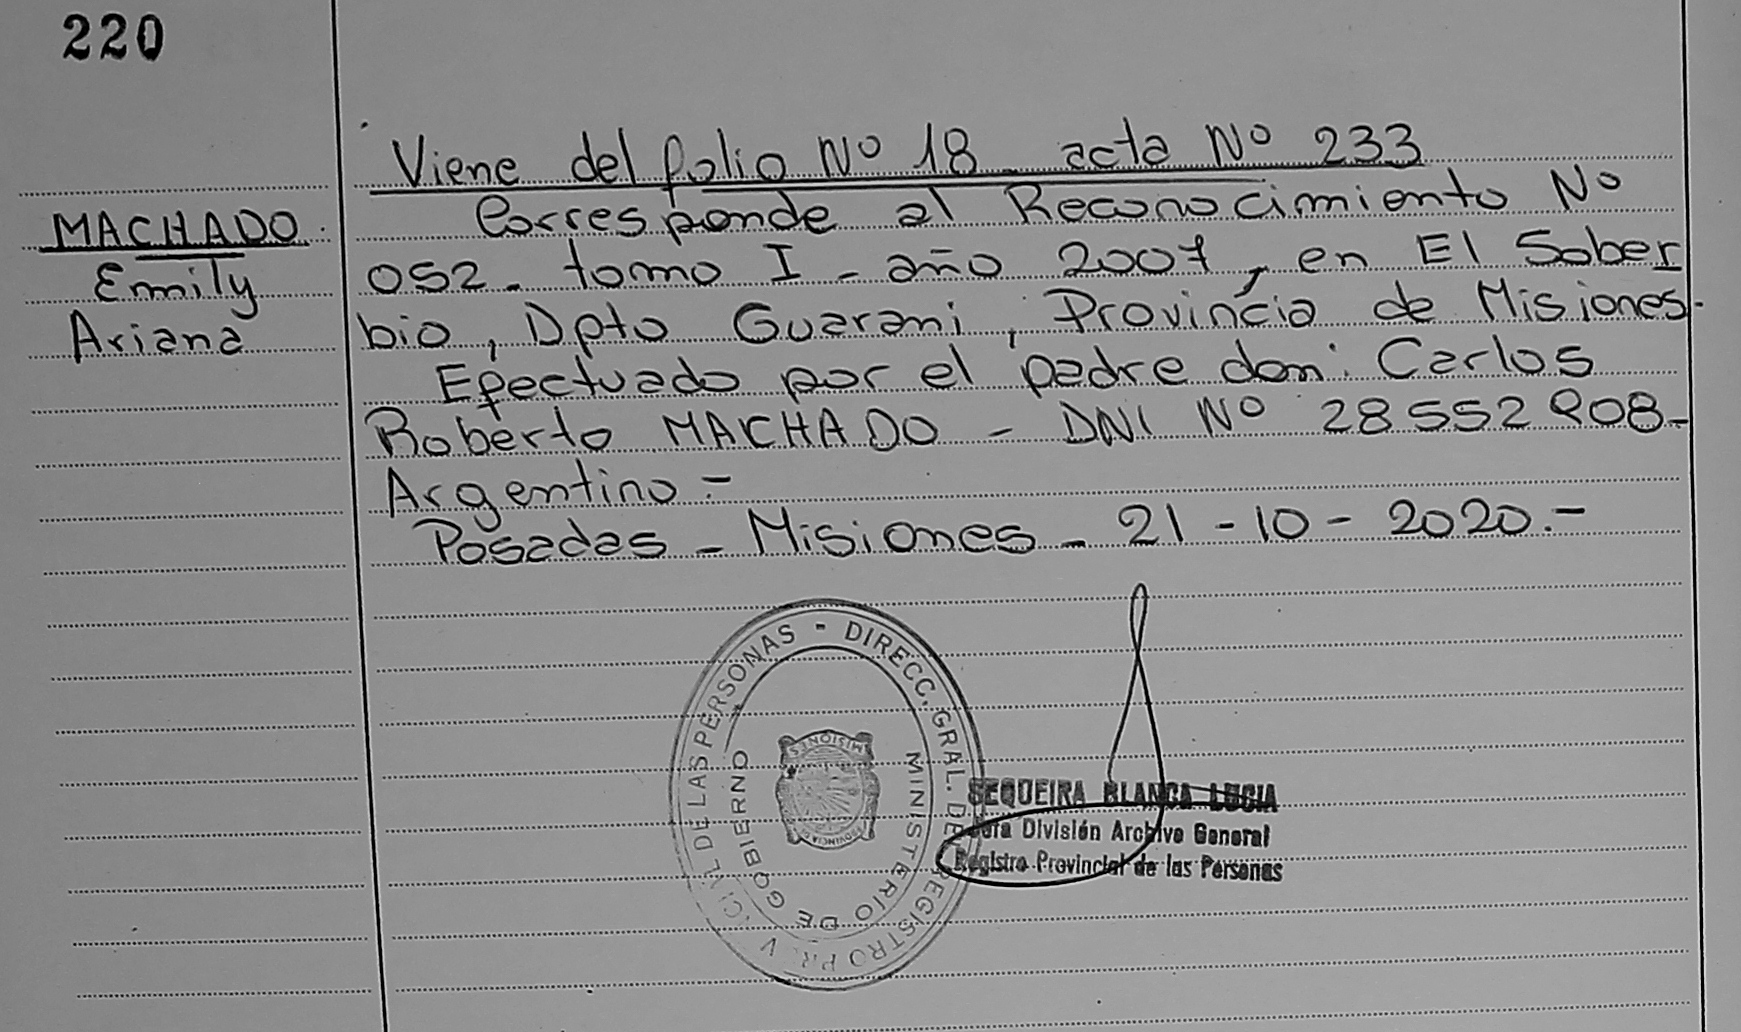 220
Viene del folio Nº 18 acta Nº 233
MACHADO
Emily
Ariana
Corresponde al Reconocimiento Nº
052. tomo I - año 2007, en El Sober
bio, Dpto Guarani, Provincia de Misiones.
Efectuado por el padre don: Carlos
Roberto MACHADO - DNI Nº 28552908-
Argentino -
Posadas - Misiones - 21-10-2020.-
DIRECC. GRAL. DE REGISTRO PROV. CIVIL DE LAS PERSONAS -
MINISTERIO DE GOBIERNO
MISIONES
PROVINCIA
SEQUEIRA BLANCA LUCIA
Jefa División Archivo General
Registro Provincial de las Personas